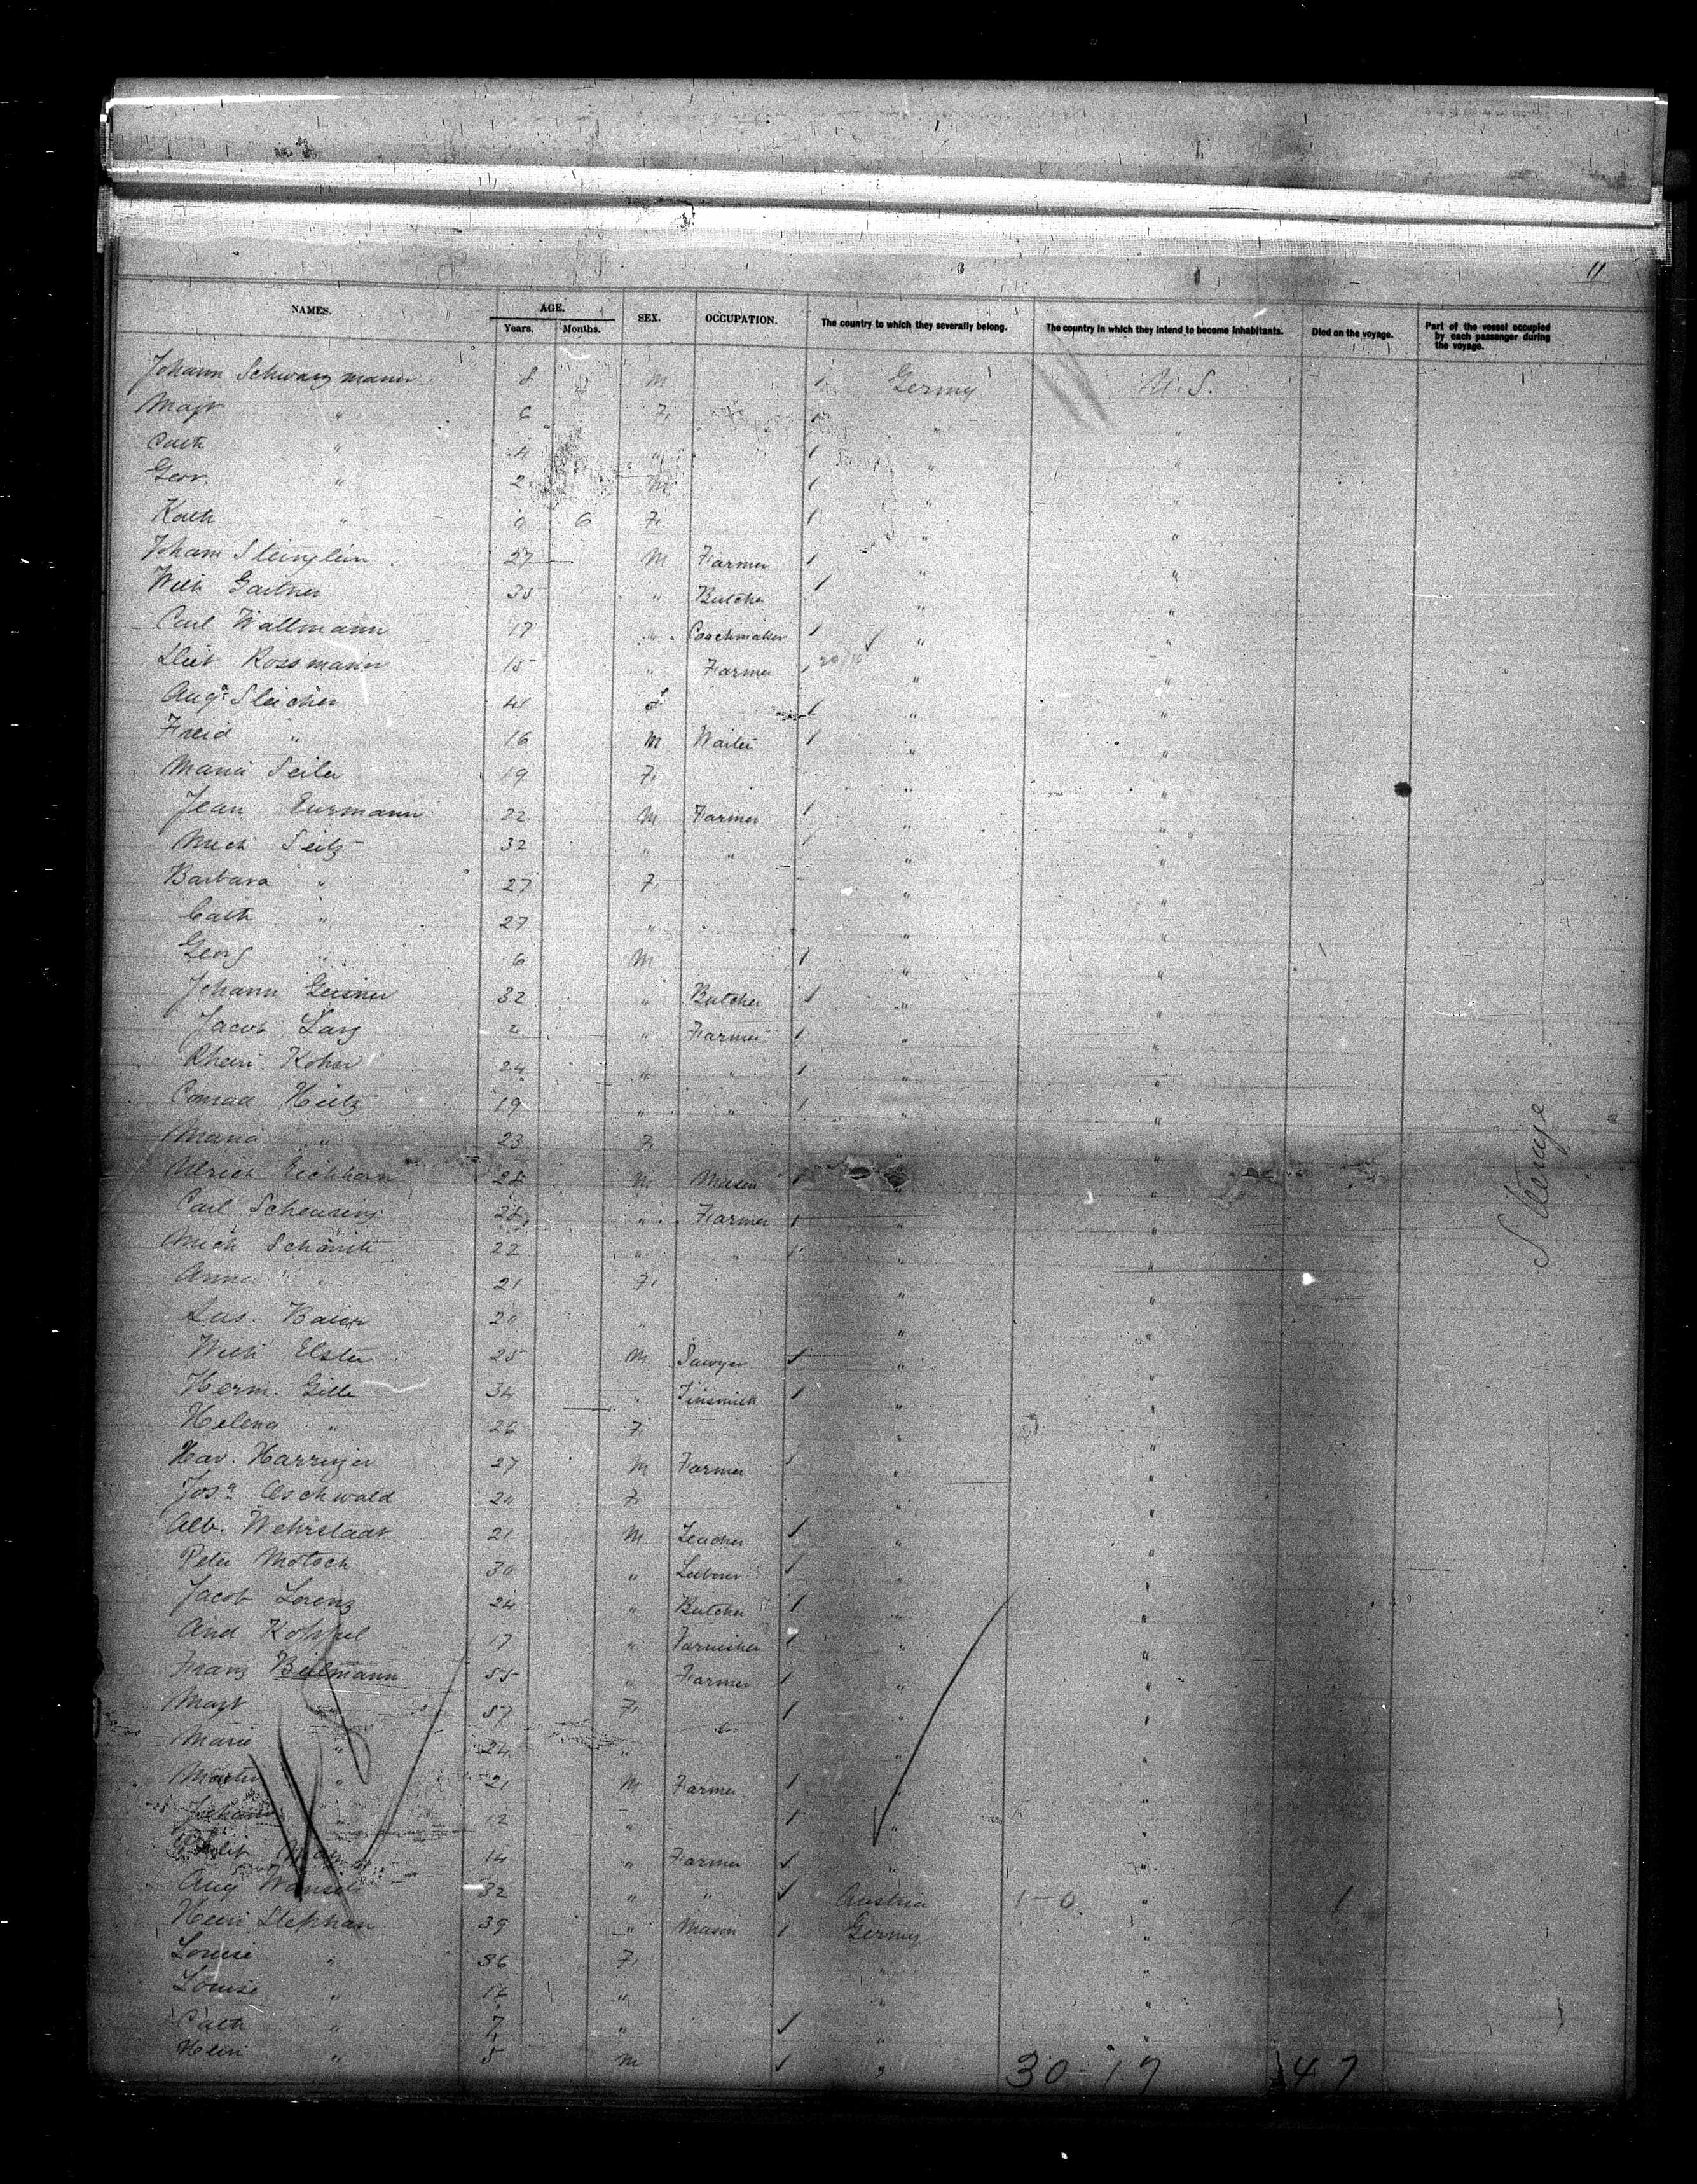 11
NAMES. AGE. SEX. OCCUPATION. The country to which they severally belong. The country in which they intend to become inhabitants. Died on the voyage. Part of the vessel occupied by each passenger during the voyage.
Years. Months.
Johann Schwarzmann 8 M 1 Germy U.S.
Magt " 6 F. 1 " "
Cath " 4 " 1 " "
Geor. " 2 M 1 " "
Kath " " 6 F. 1 " "
Johann Steinglein 27 M Farmer 1 " "
Wilh Gartner 35 " Butcher 1 " "
Carl Wallmann 17 " Coachmaker 1 " "
Rossmann 15 " Farmer 1 " "
Aug. Sleicher 41 1 " "
Freid " 16 M Waiter 1 " "
Maria Seiler 19 F. " "
Jean Eurmann 22 M Farmer 1 " "
Mich Seitz 32 " " 1 " "
Barbara " 27 F. " "
Cath " 27 " " "
Georg " 6 M 1 " "
Johann Geisner 32 " Butcher 1 " "
Jacob Lang " Farmer 1 " "
Rhein Koher 24 " " 1 " "
Conrad Heitz 19 " " 1 " "
Maria " 23 F. " "
Ulrich Eichhorn 28 M Mason 1 " "
Carl Scheuring 28 " Farmer 1 " "
Mich Schmith 22 " " 1 "
Anna " 21 F. " "
Sus. Baier 20 " " "
Wilh Elster 25 M Sawyer 1 " "
Herm. Gille 34 " Tinsmith 1 " "
Helena " 26 F. " "
Xav. Harringer 27 M Farmer 1 " "
Josa. Aschwald 20 F. " "
Alb. Wehrstaat 21 M Teacher 1 " "
Peter Motsch 30 " Laborer 1 " "
Jacob Lorenz 24 " Butcher 1 " "
And Kohpel 17 " 1 " "
Franz Beilmann 55 " Farmer 1 " "
Magt " 57 F. 1 " "
Marie " 24 " " "
Martin " 21 M Farmer 1 " "
Johann " 12 " 1 " "
Philip 14 " Farmer 1 " "
Aug 32 " " 1 Austria 1-0 " 1
Hein Stephan 39 " Mason 1 Germy "
Louise " 36 F. " "
Louise " " " "
Cath " 7 " 1 " "
Hein " 5 M 1 " "
30-17 47
Steerage